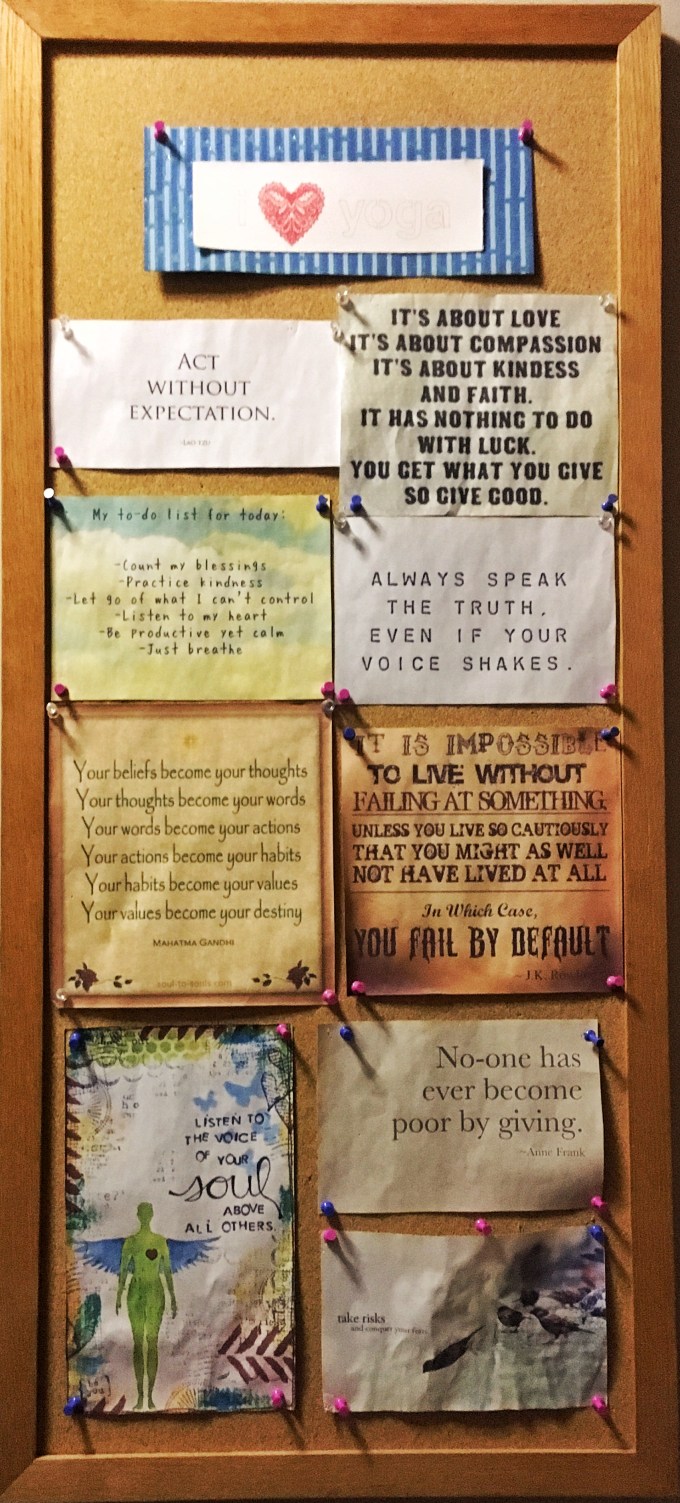 I yoga
ACT
WITHOUT
EXPECTATION.
-LAO TZU
IT'S ABOUT LOVE
IT'S ABOUT COMPASSION
IT'S ABOUT KINDESS
AND FAITH.
IT HAS NOTHING TO DO
WITH LUCK.
YOU GET WHAT YOU GIVE
SO GIVE GOOD.
My to-do list for today:
-Count my blessings
-Practice kindness
-Let go of what I can't control
-Listen to my heart
-Be productive yet calm
-Just breathe
ALWAYS SPEAK
THE TRUTH,
EVEN IF YOUR
VOICE SHAKES.
Your beliefs become your thoughts
Your thoughts become your words
Your words become your actions
Your actions become your habits
Your habits become your values
Your values become your destiny
MAHATMA GANDHI
IT IS IMPOSSIBLE
TO LIVE WITHOUT
FAILING AT SOMETHING,
UNLESS YOU LIVE SO CAUTIOUSLY
THAT YOU MIGHT AS WELL
NOT HAVE LIVED AT ALL
In Which Case,
YOU FAIL BY DEFAULT
~J.K.
LISTEN TO
THE VOICE
OF YOUR
soul
ABOVE
ALL OTHERS.
No-one has
ever become
poor by giving.
~Anne Frank
take risks
and conquer your fears